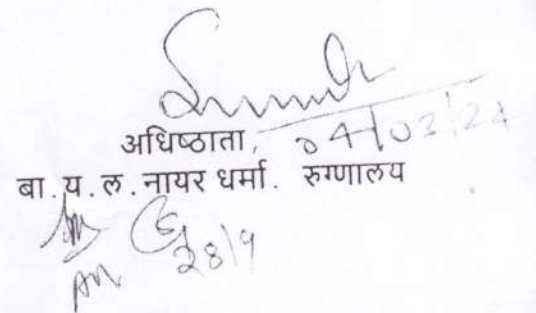 अधिष्ठाता, 04/03/24
बा.य.ल.नायर धर्मा. रुग्णालय
28/9